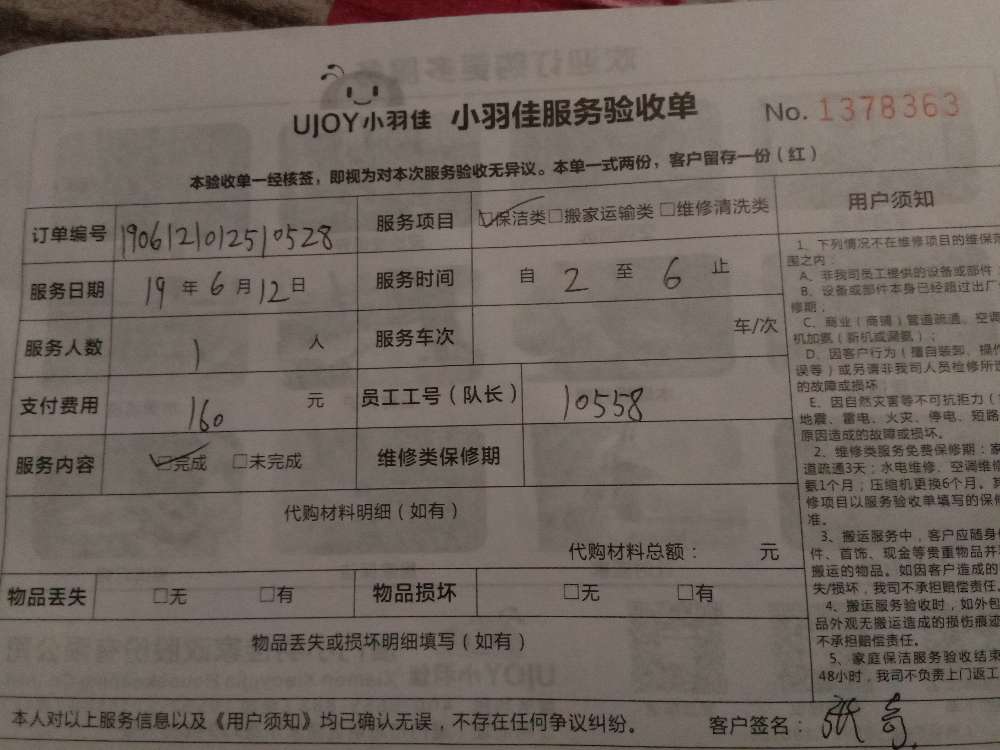 UJOY小羽佳 小羽佳服务验收单 No. 1378363
本验收单一经核签，即视为对本次服务验收无异议。本单一式两份，客户留存一份（红）
订单编号 190612101251​0528 服务项目 ☑保洁类□搬家运输类□维修清洗类
服务日期 19年6月12日 服务时间 自 2 至 6 止
服务人数 1 人 服务车次 车/次
支付费用 160 元 员工工号（队长） 10558
服务内容 ☑完成 □未完成 维修类保修期
代购材料明细（如有）
代购材料总额： 元
物品丢失 □无 □有 物品损坏 □无 □有
物品丢失或损坏明细填写（如有）
本人对以上服务信息以及《用户须知》均已确认无误，不存在任何争议纠纷。 客户签名：
用户须知
1、下列情况不在维修项目的维保范
围之内：
A、非我司员工提供的设备或部件；
B、设备或部件本身已经超过出厂
修期；
C、商业（商铺）管道疏通、空调
机加氨（新机或漏氨）；
D、因客户行为（擅自装卸、操作
误等）或另请非我司人员检修所造
的故障或损坏；
E、因自然灾害等不可抗拒力（
地震、雷电、火灾、停电、短路
原因造成的故障或损坏。
2、维修类服务免费保修期：家
道疏通3天；水电维修、空调维修
氨1个月；压缩机更换6个月。其
修项目以服务验收单填写的保修
准。
3、搬运服务中，客户应随身
件、首饰、现金等贵重物品并
搬运的物品。如因客户造成的
失/损坏，我司不承担赔偿责任。
4、搬运服务验收时，如外包
品外观无搬运造成的损伤痕迹
不承担赔偿责任。
5、家庭保洁服务验收结束
48小时，我司不负责上门返工